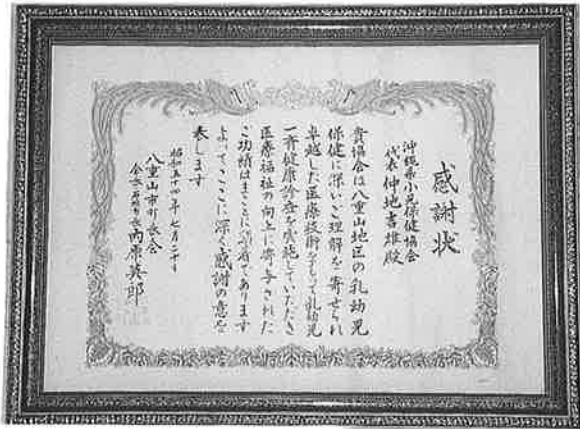 感謝状
沖縄県小児保健協会
代表仲地吉雄殿
貴協会は八重山地区の乳幼児
保健に深いご理解を寄せられ
卓越した医療技術をもって乳幼児
一斉健康診査を実施していただき
医療福祉の向上に寄与された
ご功績はまことに顕著であります
よってここに深く感謝の意を
表します
昭和五十四年七月二十日
八重山市町長会
会長 内原英郎